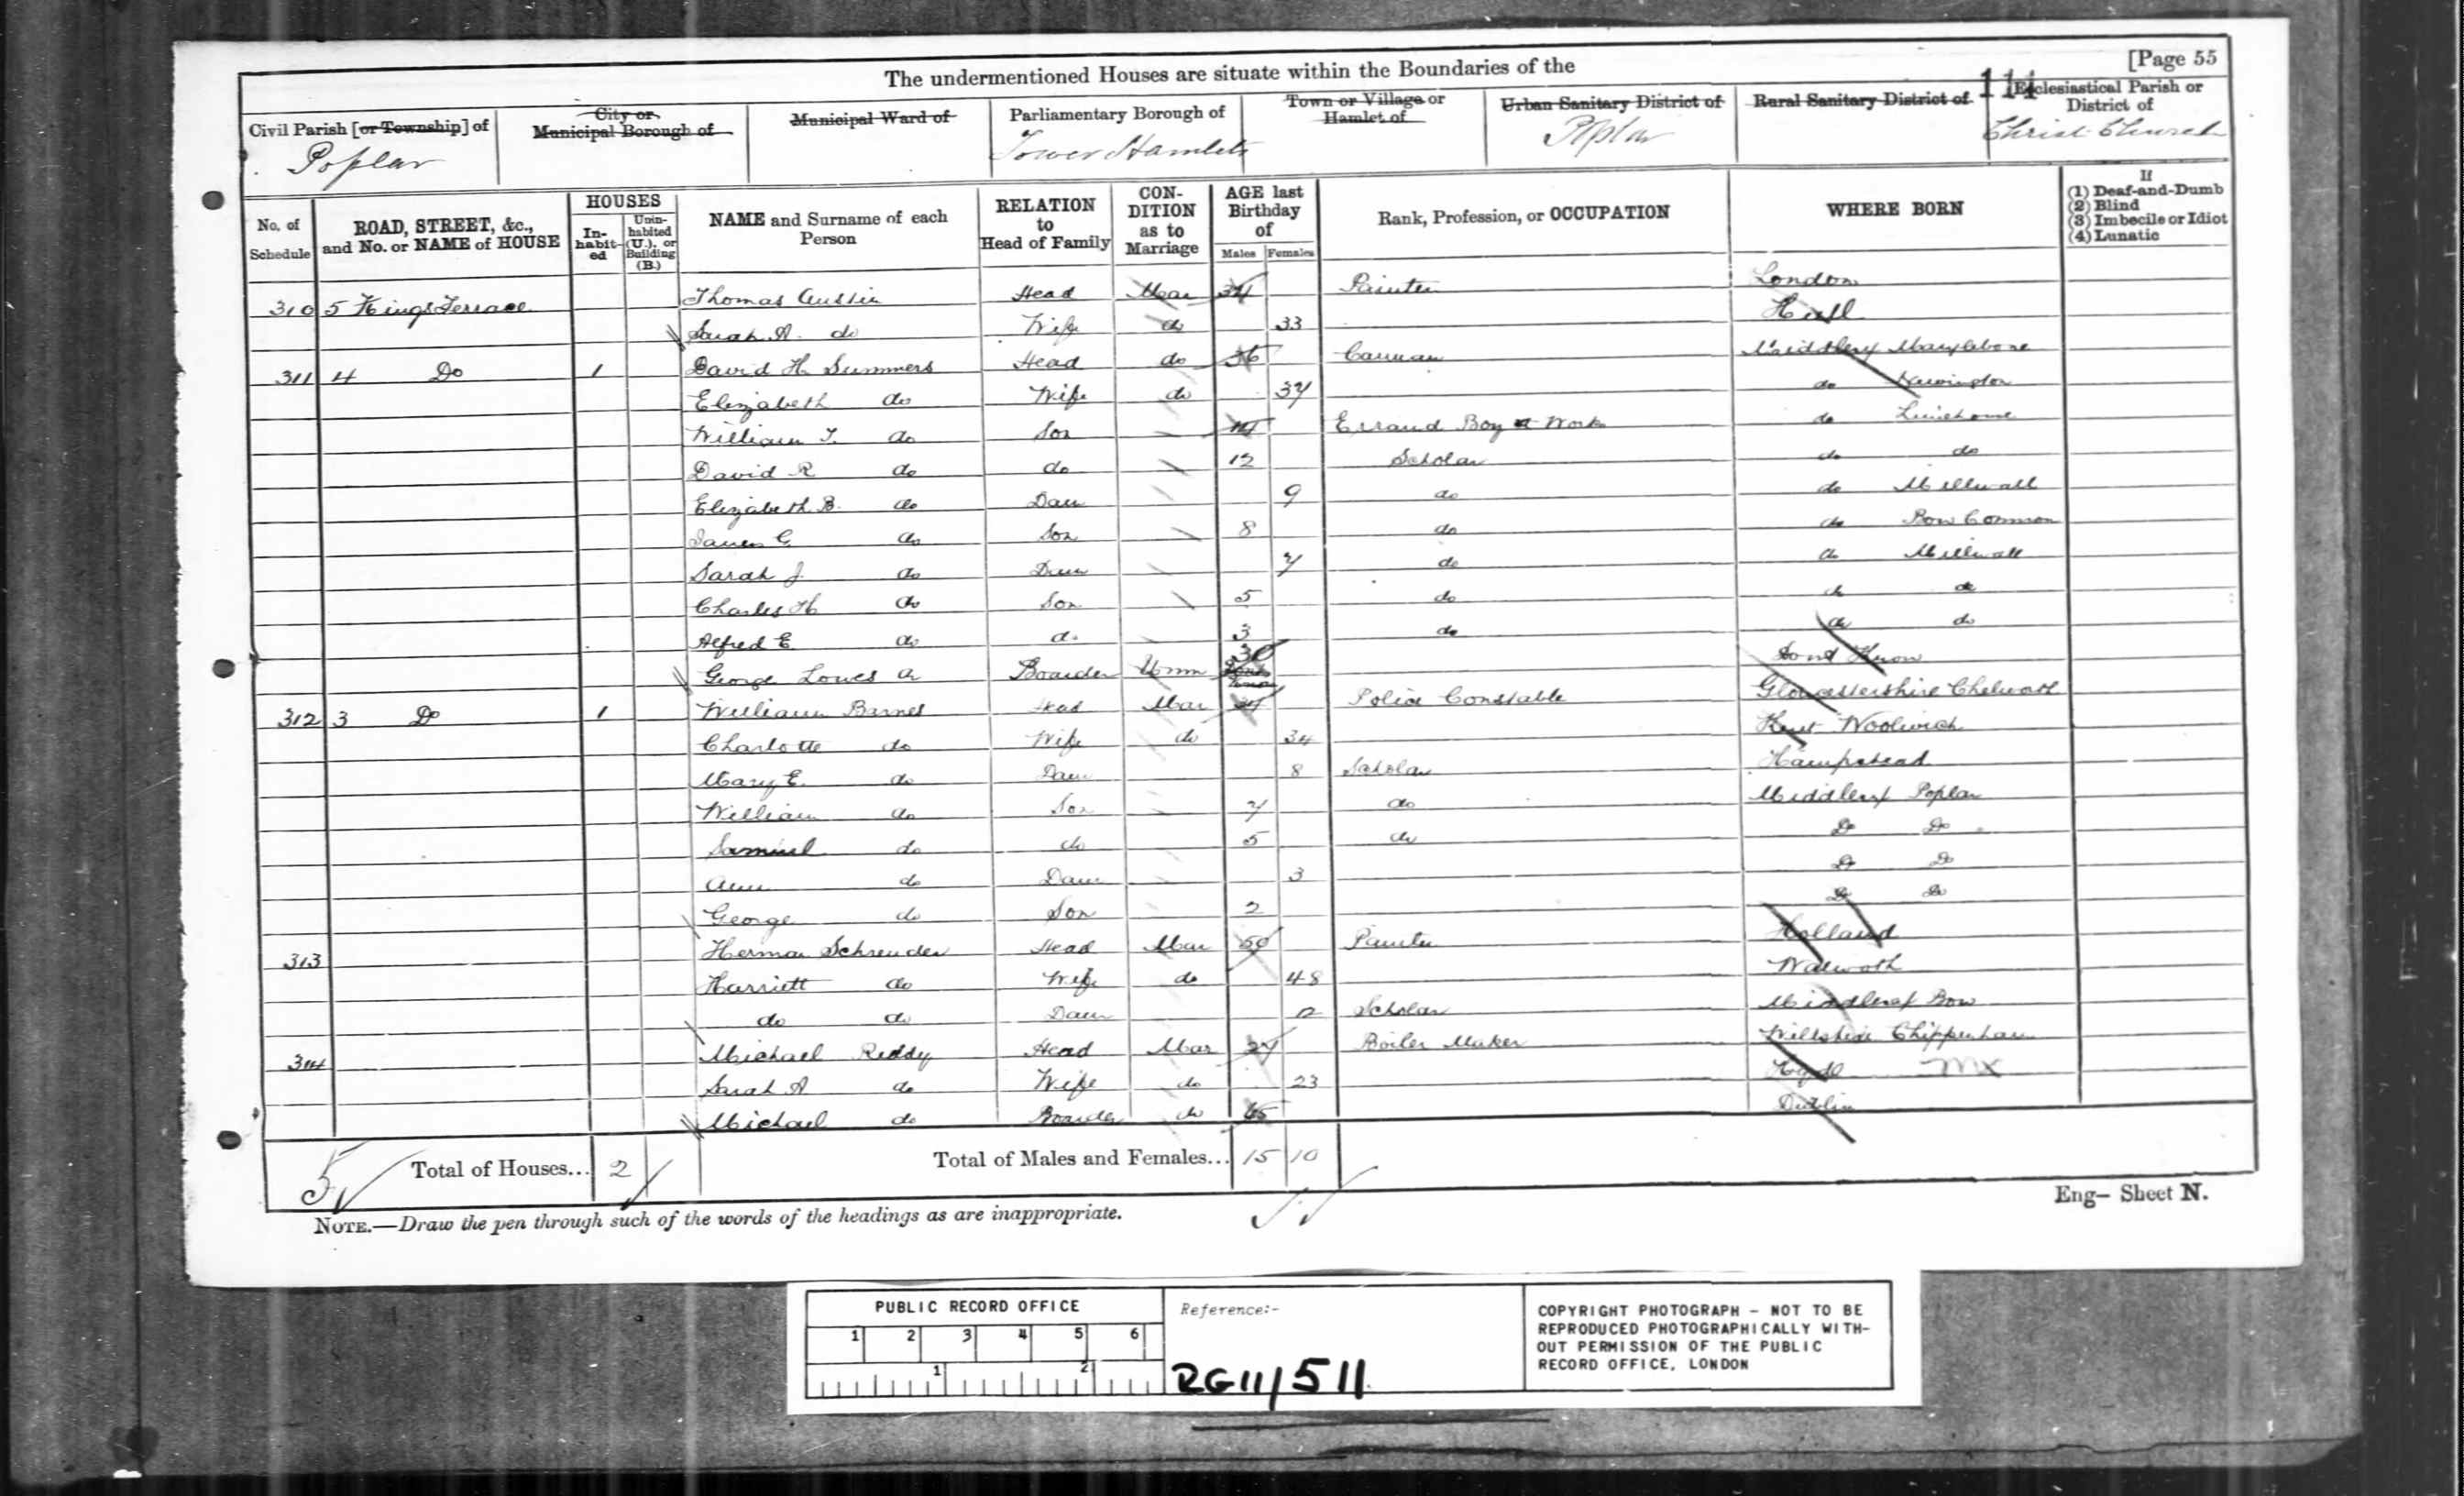 [Page 55
The undermentioned Houses are situate within the Boundaries of the
Civil Parish [or Township] of
Poplar
City or
Municipal Borough of
Municipal Ward of
Parliamentary Borough of
Tower Hamlets
Town or Village or
Hamlet of
Urban Sanitary District of
Poplar
Rural Sanitary District of
Ecclesiastical Parish or
District of
Christ Church
No. of Schedule
ROAD, STREET, &c., and No. or NAME of HOUSE
HOUSES
In-habit-ed
Unin-habited (U.), or Building (B.)
NAME and Surname of each Person
RELATION to Head of Family
CON-DITION as to Marriage
AGE last Birthday of
Males Females
Rank, Profession, or OCCUPATION
WHERE BORN
If
(1) Deaf-and-Dumb
(2) Blind
(3) Imbecile or Idiot
(4) Lunatic
310 5 Kings Terrace Thomas Austin Head Mar 34 Painter London
Sarah A. do Wife do 33 Hull
311 4 Do 1 David H. Summers Head do 36 Carman Middlesex Marylebone
Elizabeth do Wife do 37 do Newington
William T. do Son 14 Errand Boy at Work do Limehouse
David R do do 12 Scholar do do
Elizabeth B. do Dau 9 do do Millwall
James C do Son 8 do do Bow Common
Sarah J. do Daur 7 do do Millwall
Charles H do Son 5 do do do
Alfred E do do 3 do do do
George Lowes Boarder Unm 30
312 3 Do 1 William Barnes Head Mar Police Constable Gloucestershire
Charlotte do Wife do 34 Kent Woolwich
Mary E. do Daur 8 Scholar Hampstead
William do Son 7 do Middlesex Poplar
Samuel do do 5 do Do Do
Ann do Daur 3 Do Do
George do Son 2 Do Do
313 Herman Schreuder Head Mar 50 Painter Holland
Harriett do Wife do 48 Walworth
do do Daur Scholar Middlesex Bow
314 Michael Reddy Head Mar 27 Boiler Maker Wiltshire Chippenham
Sarah A do Wife do 23 MX
Michael do Boarder do 65 Dublin
5 Total of Houses... 2 Total of Males and Females... 15 10
NOTE.—Draw the pen through such of the words of the headings as are inappropriate.
Eng— Sheet N.
PUBLIC RECORD OFFICE
1 2 3 4 5 6
1 2
Reference:-
RG11/511
COPYRIGHT PHOTOGRAPH - NOT TO BE
REPRODUCED PHOTOGRAPHICALLY WITH-
OUT PERMISSION OF THE PUBLIC
RECORD OFFICE, LONDON